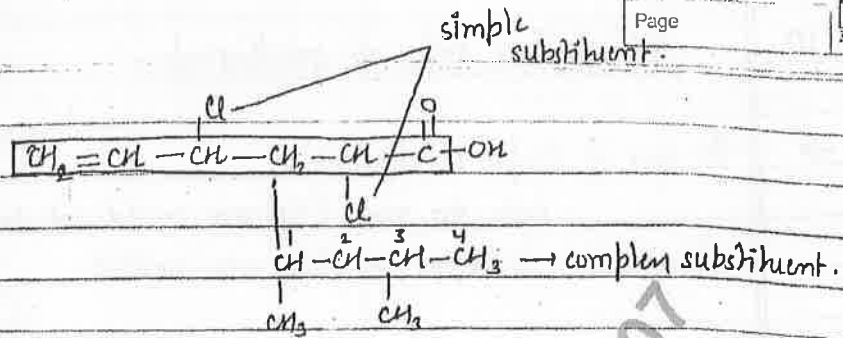 Page
simple
substituent.
Cl O
CH2 = CH — CH — CH2 — CH — C — OH
Cl
1 2 3 4
CH — CH — CH — CH3 → complen substituent.
CH3 CH3
07